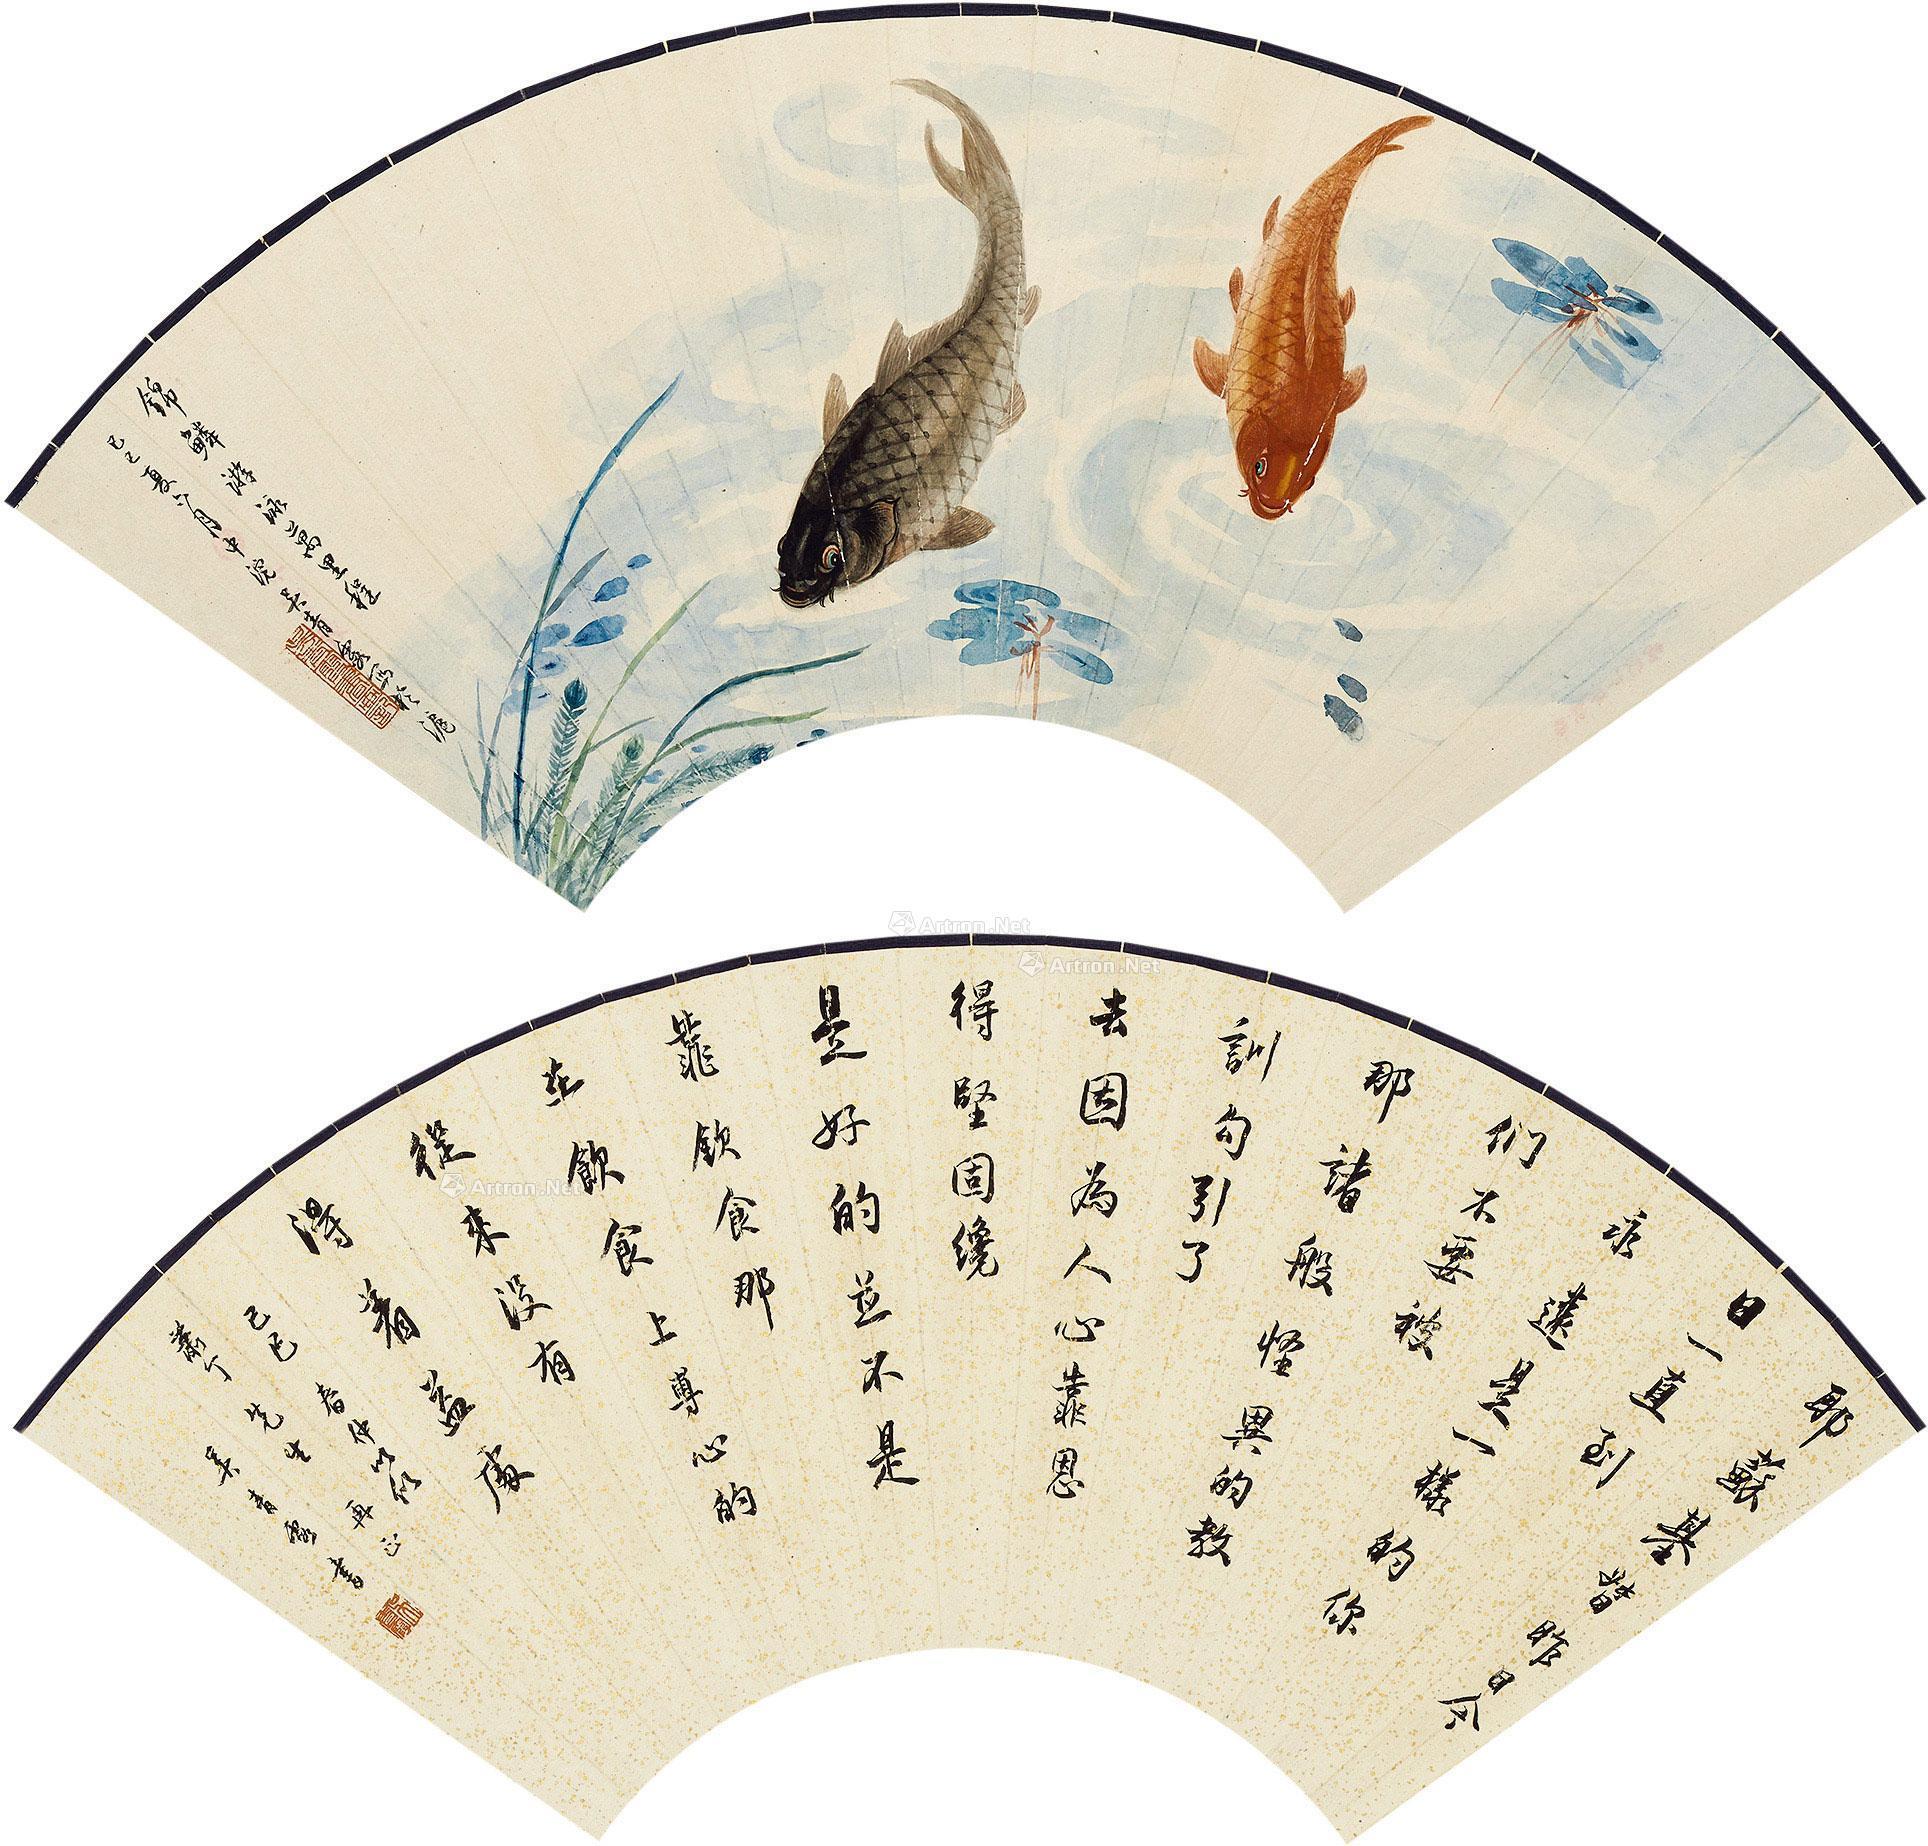 錦鱗游泳萬里程
己巳夏六月中浣吳青霞寫於滬
Artron.Net
Artron.Net
Artron.Net
耶蘇基督昨日今
日一直到
永遠是一樣的你
們不要被
那諸般怪異的教
訓勾引了
去因為人心靠恩
得堅固纔
是好的並不是
靠飲食那
在飲食上專心的
從來沒有
得着益處
己巳春仲以似
肅丁先生再正
吳青霞書